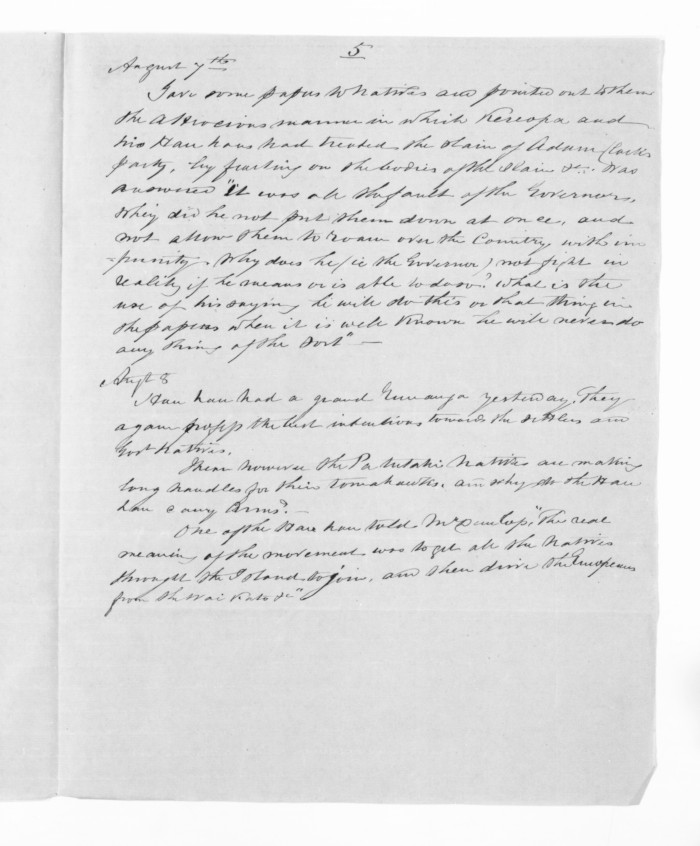 5
August 7th
Gave some papers to Natives and pointed out to them
the Attrocious manner in which Kereopa and
his Hau haus had treated the slain of Adam Clark's
party, by feasting on the bodies of the slain &c. Was
answered "it was all the fault of the Governors,
Why did he not put them down at once, and
not allow them to roam over the Country with im
-punity. Why does he (ie the Governor) not fight in
reality if he means or is able to do so? What is the
use of his saying he will do this or that thing in
the papers when it is well known he will never do
any thing of the sort" —
Augt 8
Hau hau had a grand Runanga yesterday. They
again profess the best intentions towards the settlers and
Govt Natives.
I hear however the Patutahi Natives are making
long handles for their tomahawks, and why do the Hau
hau carry Arms? —
One of the Hau hau told Mr Dunlop, "The real
meaning of the movement was to get all the Natives
throught the Island to join, and then drive the Europeans
from the Wai Kato &c"